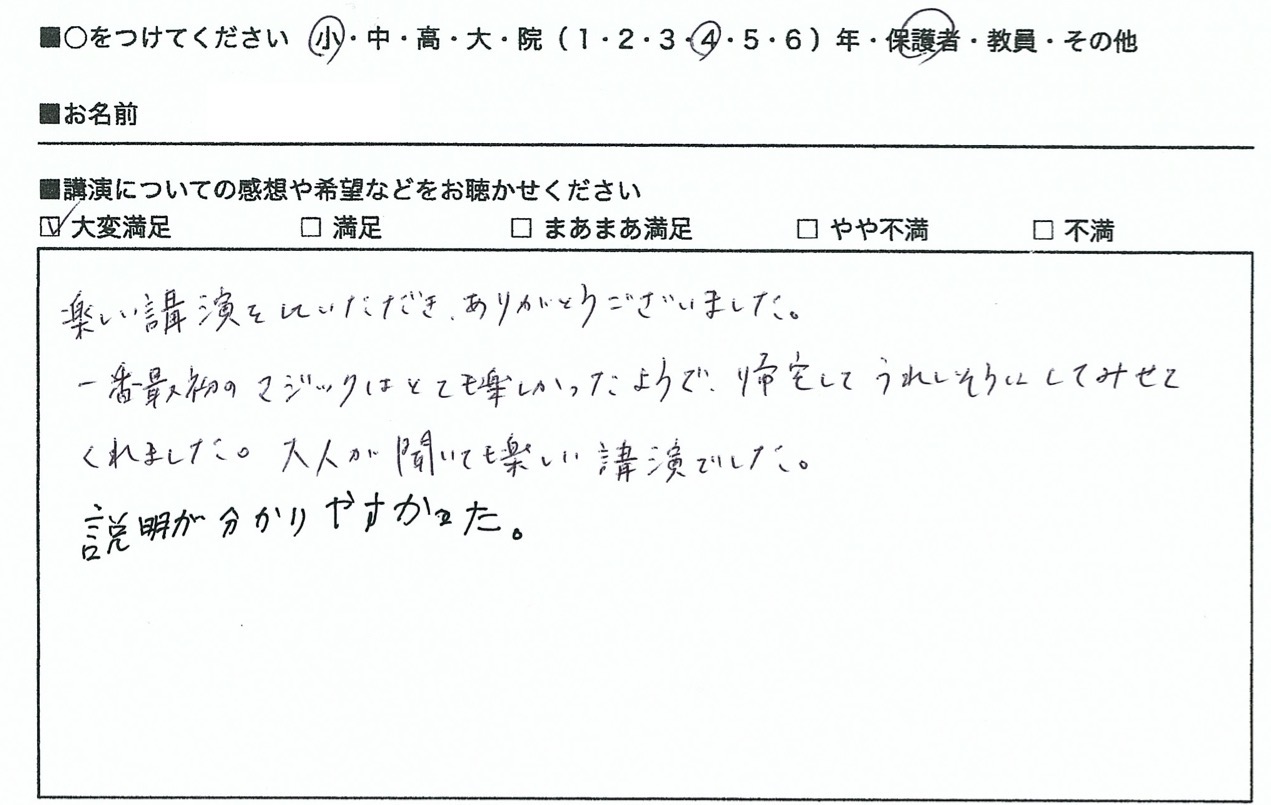 ■○をつけてください 小・中・高・大・院（1・2・3・4・5・6）年・保護者・教員・その他
■お名前
■講演についての感想や希望などをお聴かせください
☑ 大変満足 □ 満足 □ まあまあ満足 □ やや不満 □ 不満
楽しい講演をしていただき、ありがとうございました。
一番最初のマジックはとても楽しかったようで、帰宅してうれしそうにしてみせて
くれました。大人が聞いても楽しい講演でした。
説明が分かりやすかった。